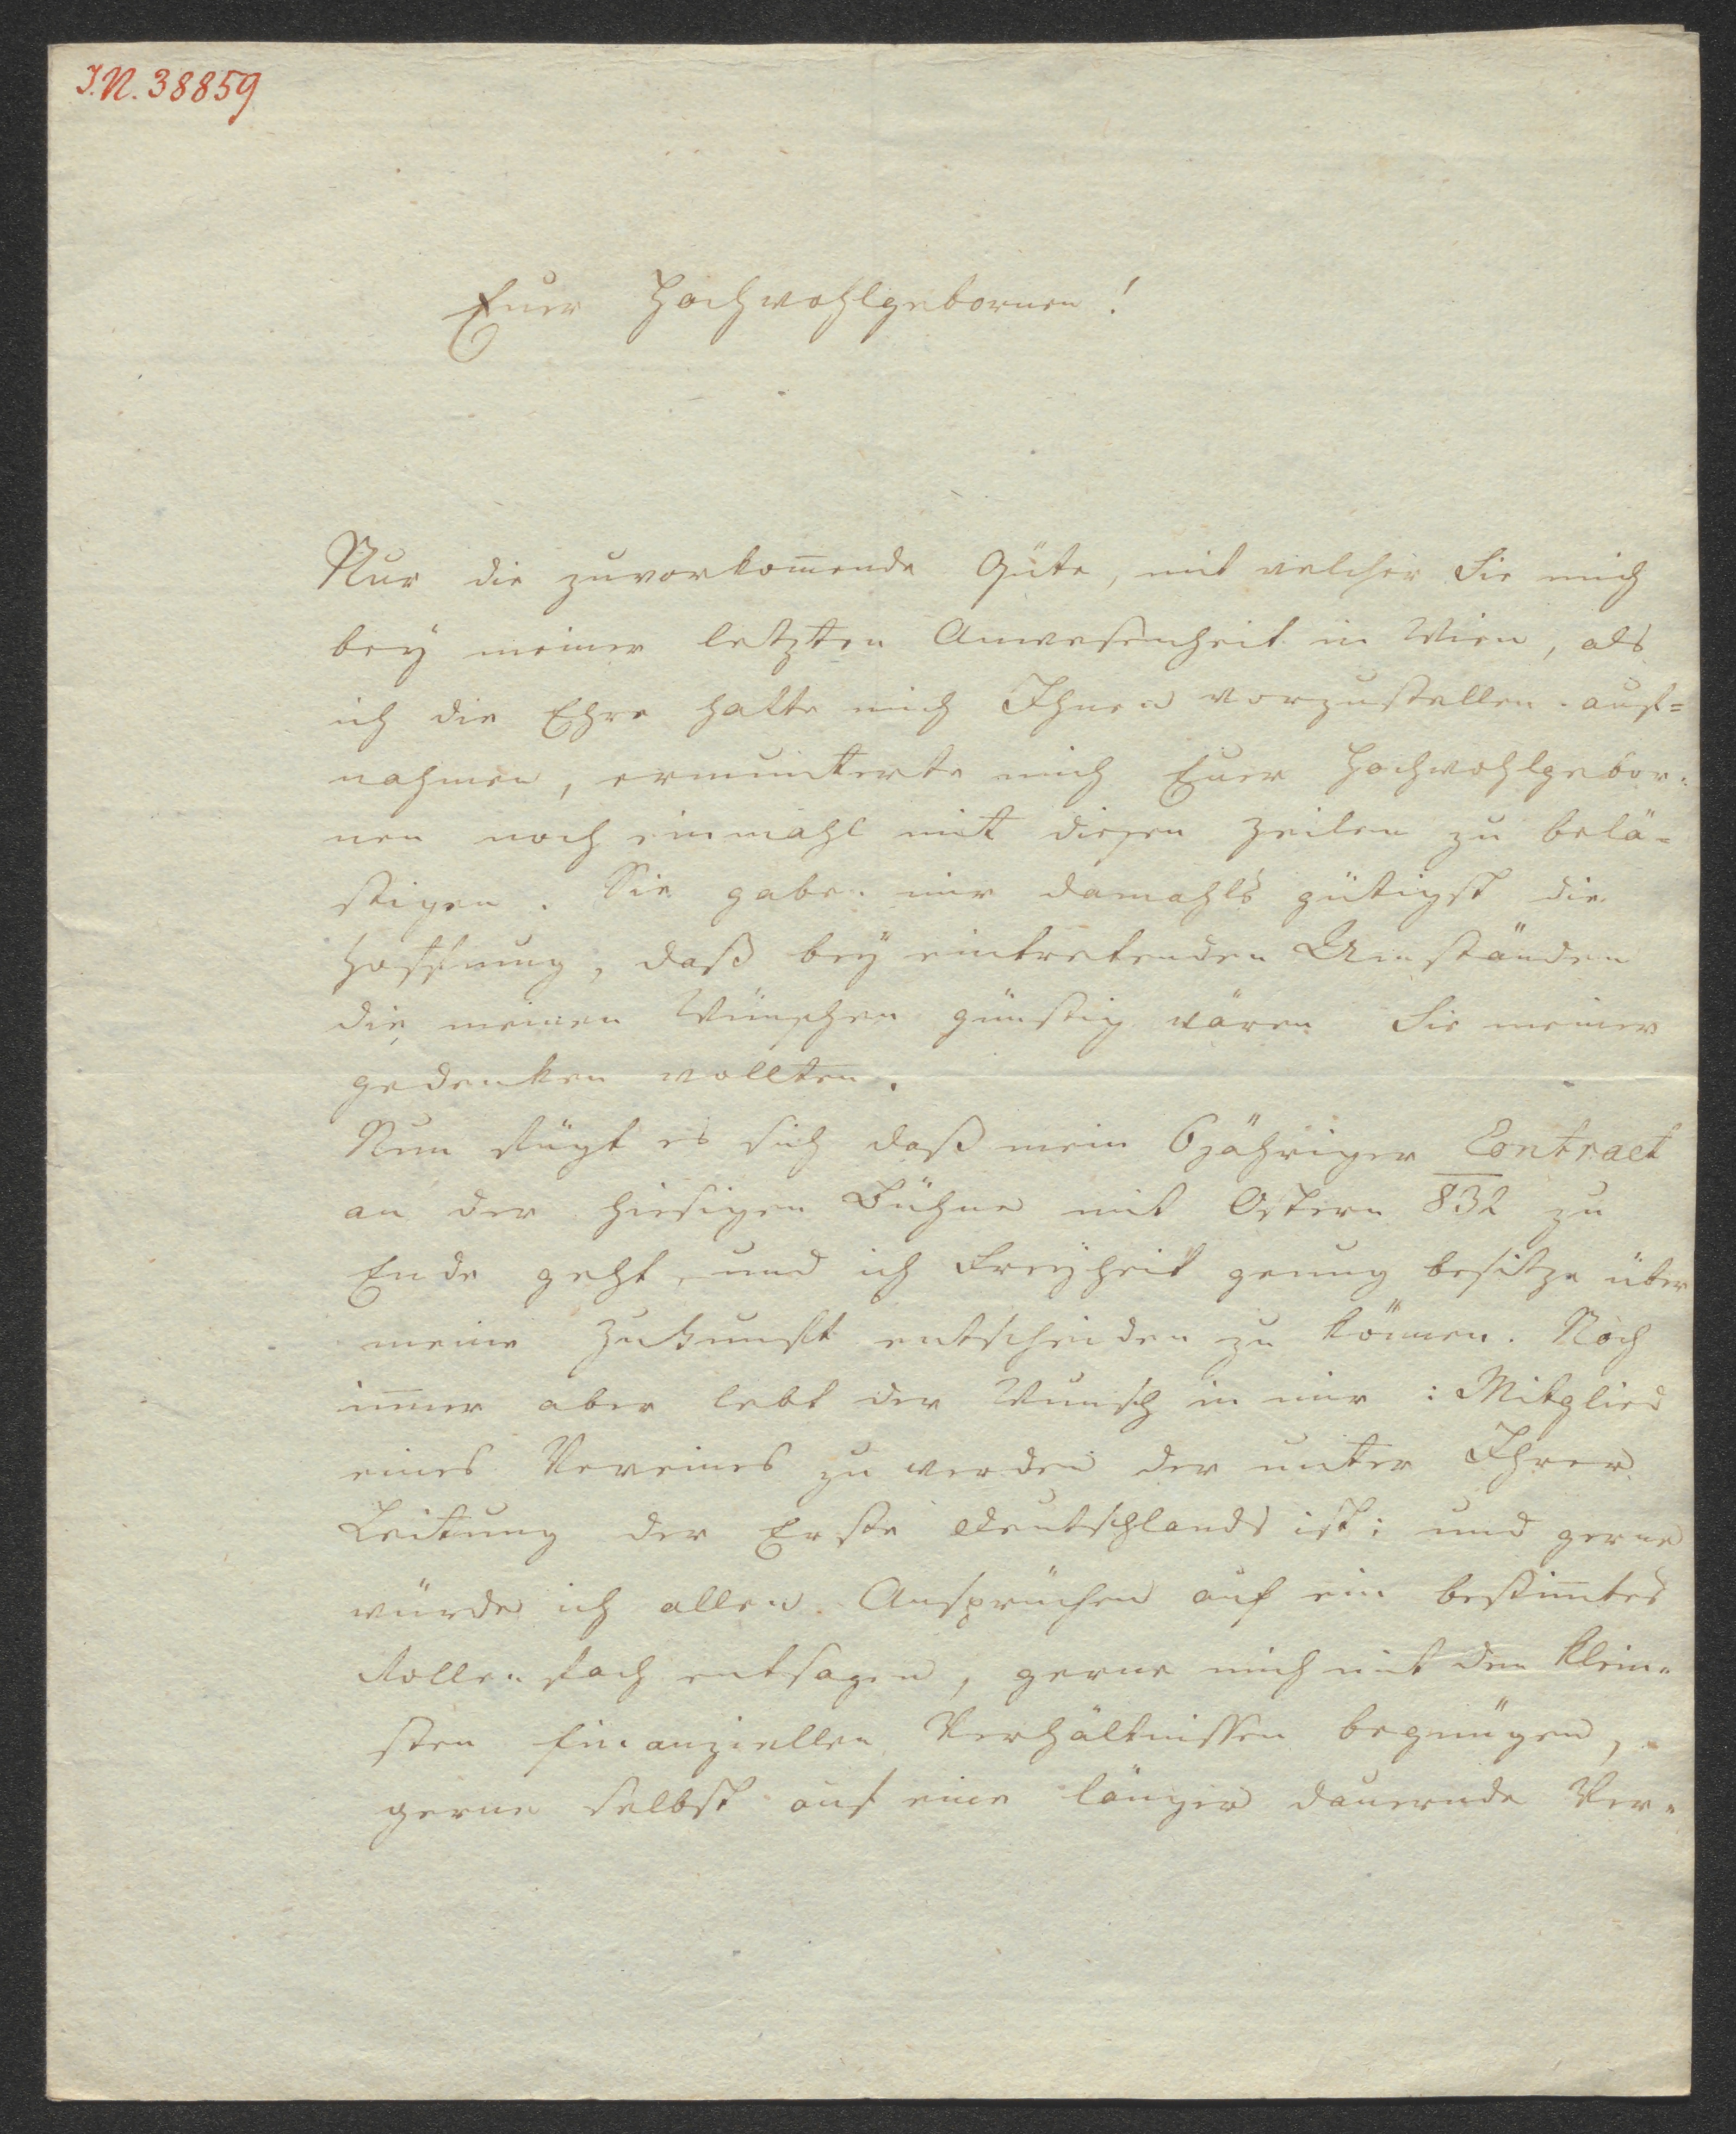 I.N. 38859
Euer Hochwohlgebornen!
Nur die zuvorkom̅ende Güte, mit welcher Sie mich
bey meiner letzten Anwesenheit in Wien, als
ich die Ehre hatte mich Ihnen vorzustellen auf=
nahmen, ermunterte mich Euer Hochwohlgebor=
nen noch einmahl mit diesen Zeilen zu belä=
stigen. Sie gaben mir damahls gütigst die
Hoffnung, daß bey eintretenden Umständen
die meinen Wünschen günstig wären Sie meiner
gedenken wollten.
Nun fügt es sich daß mein 6jähriger Contract
an der hiesigen Bühne mit Ostern 832 zu
Ende geht, und ich Freyheit genug besitze über
meine Zukunft entscheiden zu können. Noch
im̅er aber lebt der Wunsch in mir: Mitglied
eines Vereines zu werden der unter Ihrer
Leitung der Erste Deutschlands ist; und gerne
würde ich allen Ansprüchen auf ein bestim̅tes
Rollenfach entsagen, gerne mich mit den klein=
sten finanziellen Verhältnissen begnügen,
gerne selbst auf eine länger dauernde Ver=